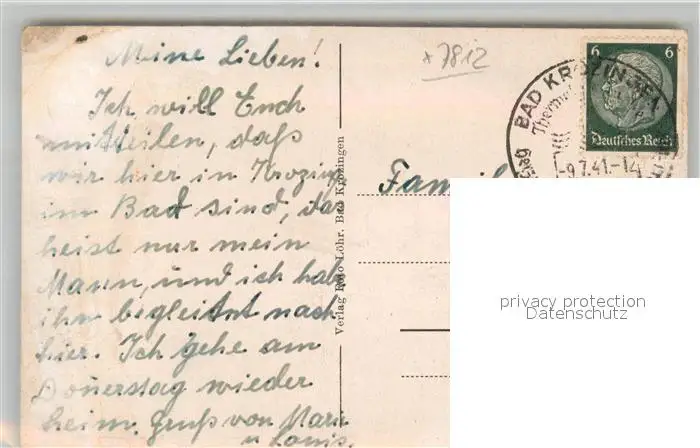 Meine Lieben!
Ich will Euch
mitteilen, daß
wir hier in Krozing
im Bad sind, das
heist nur mein
Mann, und ich habe
ihn begleitnt nach
hier. Ich gehe am
Donerstag wieder
heim. Gruß von Marie
u Louis.
Verlag Foto-Löhr, Bad Krozingen
*7812
BAD KROZINGEN
Therma
-9.7.41.-14
6 6
Deutsches Reich
Famil
privacy protection
Datenschutz